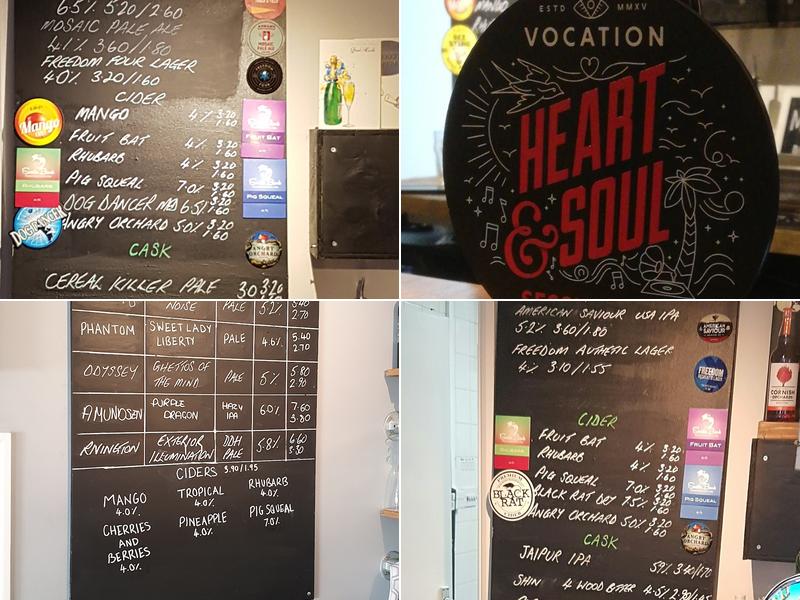 6.5% 5.20/2.60
MOSAIC PALE ALE
4.1% 3.60/1.80
FREEDOM FOUR LAGER
4.0% 3.20/1.60
CIDER
MANGO 4% 3.20
1.60
FRUIT BAT 4% 3.20
1.60
RHUBARB 4% 3.20
1.60
PIG SQUEAL 7.0% 3.20
1.60
DOG DANCER 6.5%
1.60
ANGRY ORCHARD 5.0% 3.20
1.60
CASK
CEREAL KILLER PALE 3.0 3.20
Mango
MOSAIC
PALE ALE
FREEDOM
FOUR
FRUIT BAT
RHUBARB
PIG SQUEAL
DOGDANCER
ANGRY
ORCHARD
ESTD MMXV
VOCATION
HEART
& SOUL
NOISE PALE 5.2% 5.40
2.70
PHANTOM SWEET LADY LIBERTY PALE 4.6% 5.40
2.70
ODYSSEY GHETTOS OF THE MIND PALE 5% 5.80
2.90
AMUNDSEN PURPLE DRAGON HAZY IPA 6.0% 7.60
3.80
RIVINGTON EXTERIOR ILLUMINATION DDH PALE 5.8% 6.60
3.30
CIDERS 3.90/1.95
MANGO
4.0%
TROPICAL
4.0%
RHUBARB
4.0%
CHERRIES
AND
BERRIES
4.0%
PINEAPPLE
4.0%
PIG SQUEAL
7.0%
AMERICAN SAVIOUR USA IPA
5.2% 3.60/1.80
FREEDOM AUTHETIC LAGER
4% 3.10/1.55
CIDER
FRUIT BAT 4% 3.20
1.60
RHUBARB 4% 3.20
1.60
PIG SQUEAL 7.0% 3.20
1.60
BLACK RAT DRY 7.5% 3.20
1.60
ANGRY ORCHARD 5.0% 3.20
1.60
CASK
JAIPUR IPA
5.9% 3.40/1.70
4 WOOD BITTER 4.5% 2.90/1.45
AMERICAN
SAVIOUR
FREEDOM
FRUIT BAT
PIG SQUEAL
PREMIUM
BLACK
RAT
CIDER
ANGRY
ORCHARD
CORNISH
ORCHARDS